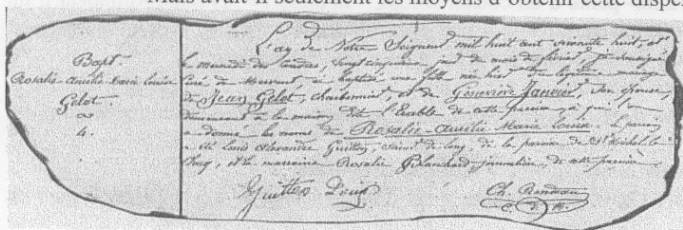 Mais avait-il seulement les moyens d'obtenir cette disper
Bapt.
Rosalie-Aurélie-Marie Louise
Gelot.
4.
L'an de Notre Seigneur mil huit cent soixante huit, et
le mercredi des Cendres, vingt cinquième jour du mois de février, je soussigné
Curé de Mervent, ai baptisé une fille née hier du légitime mariage
de Jean Gelot, charbonnier, et de Geneviève Janvier, son épouse,
demeurant à la maison dite l'Erable de cette paroisse, à qui l'on
a donné les noms de Rosalie-Aurélie Marie Louise. Le parrain
a été Louis Alexandre Guitton, de la paroisse de St Michel-le
Clouq, et la marraine Rosalie Blanchard, journalière, de cette paroisse.
Guitton Louis
Ch. Rondeau